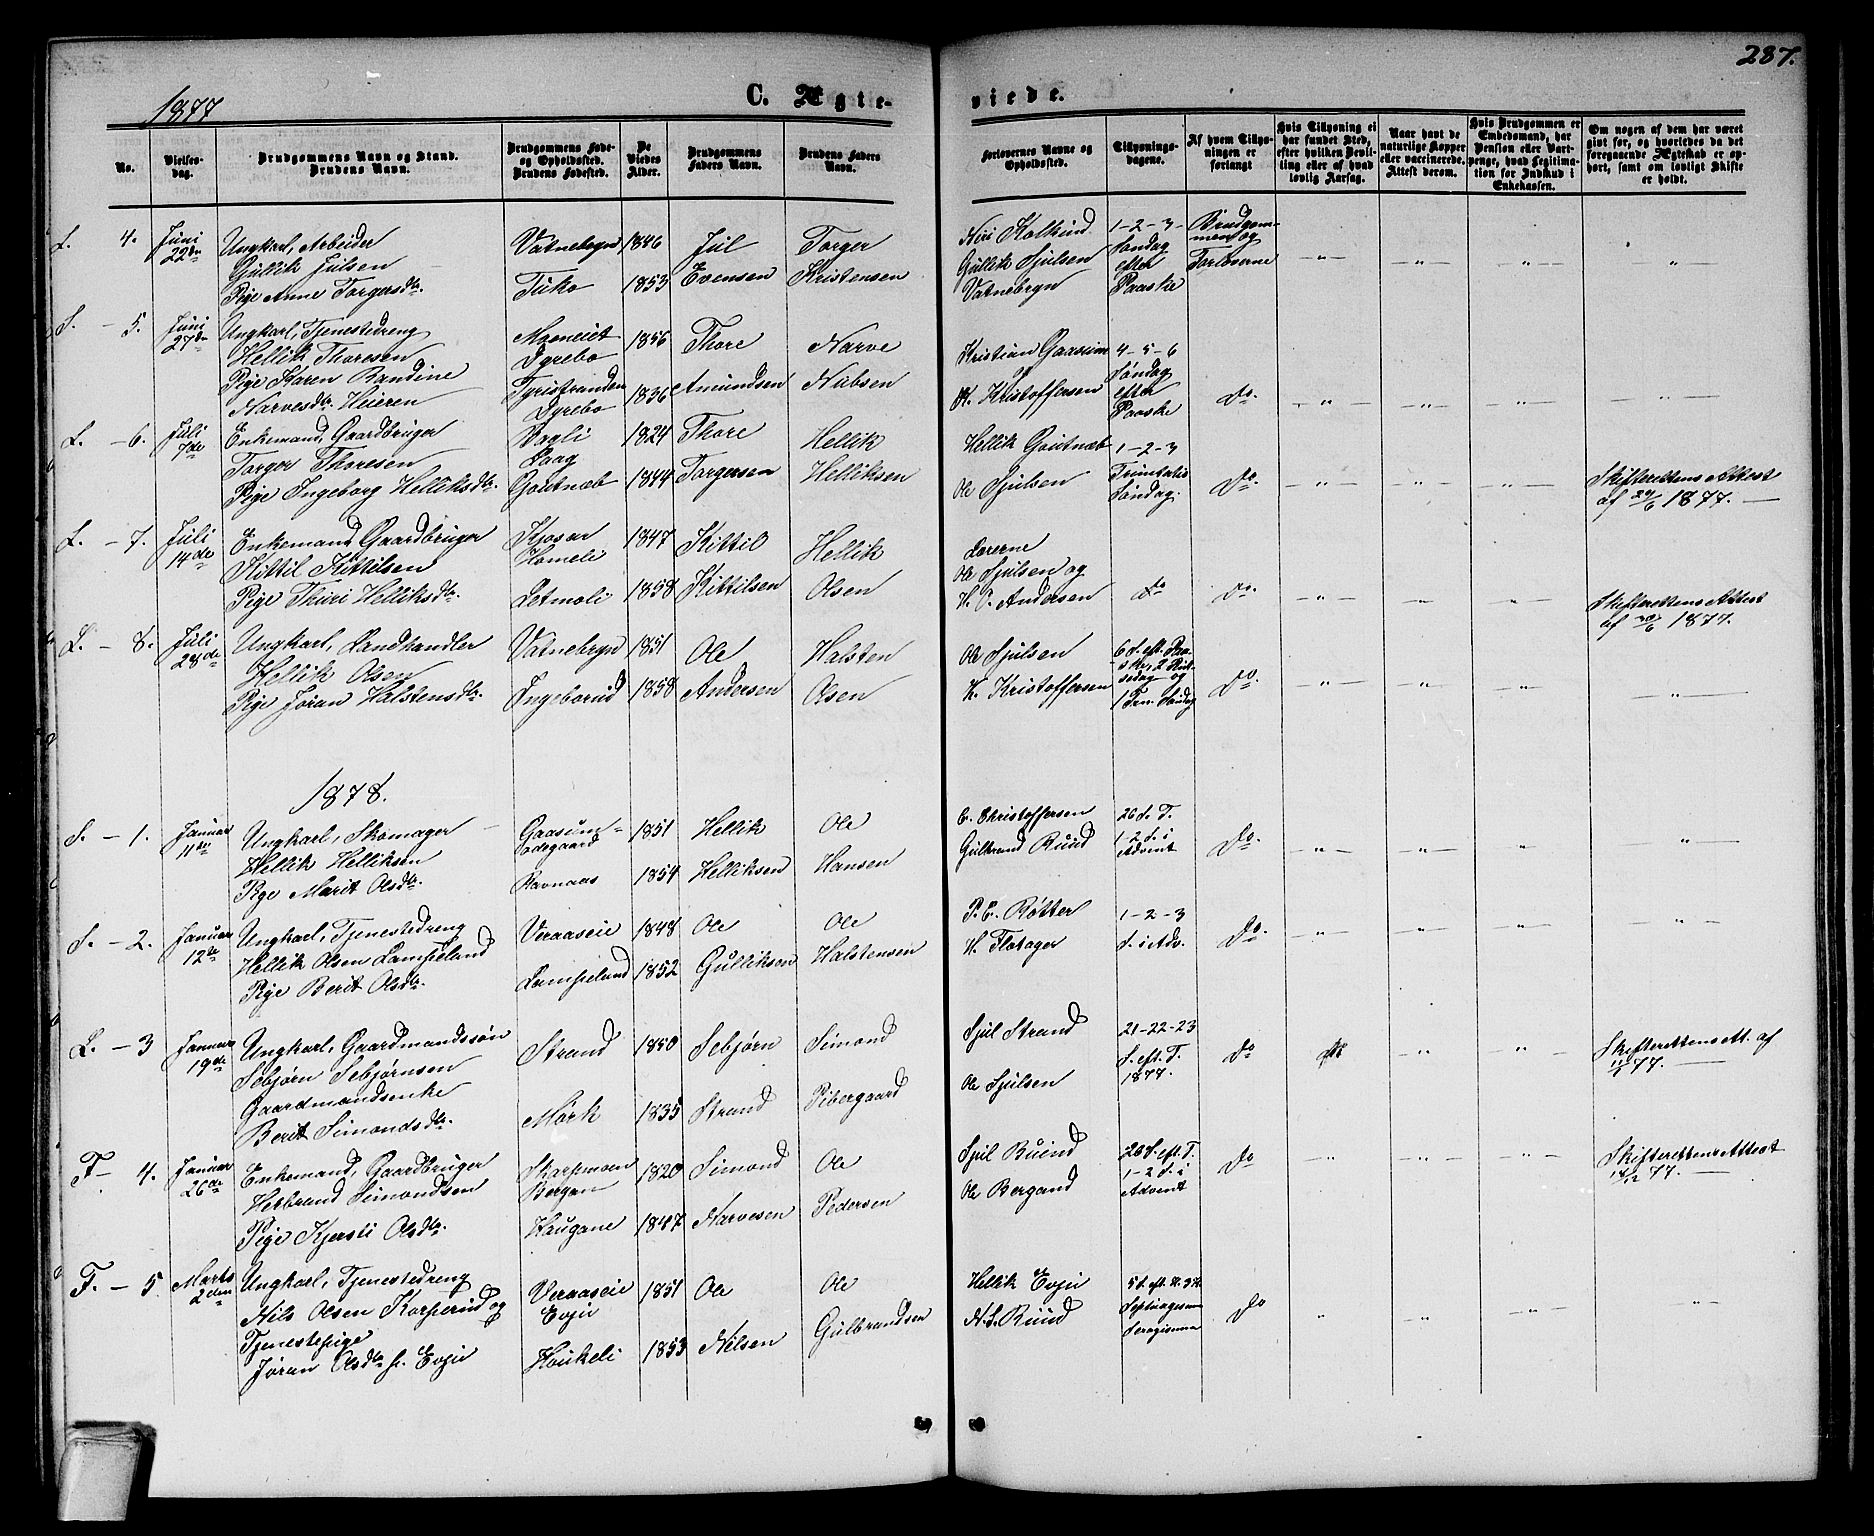 287.
1877
C. Ægte-
viede.
No.
Vielses-
dag.
Brudgommens Navn og Stand.
Brudens Navn.
Brudgommens Føde-
og Opholdssted.
Brudens Fødested.
De
Viedes
Alder.
Brudgommens
Faders Navn.
Brudens Faders
Navn.
Forlovernes Navne og
Opholdssted.
Tillysnings-
dagene.
Af hvem Tillys-
ningen er
forlangt
Hvis Tillysning ei
har fundet Sted,
efter hvilken Bevil-
ling eller af hvad
lovlig Aarsag.
Naar havt de
naturlige Kopper
eller vaccinerede.
Attest derom.
Hvis Brudgommen er
Embedsmand, har
Pension eller Vart-
penge, hvad Legitima-
tion for Indskud i
Enkekassen.
Om nogen af dem har været
gift før, og hvorledes da det
foregaaende Ægteskab er op-
hørt, samt om lovligt Skifte
er holdt.
L. 4.
Juni
22de
Ungkarl, Arbeider
Gullik Julsen
Pige Anne Torgersdtr.
Vatnebryn
Tuko
1846
1853
Jul
Evensen
Torger
Kristensen
Gullik Sjulsen
Vatnebryn
1-2-3
Søndag
efter
Paaske
Brudgom-
men og
Forloverne
S. - 5.
Juni
27de
Ungkarl, Tjenestedreng
Hellik Thoresen
Pige Karen Randine
Narvesdtr. Heieren
Moeneiet
Dyrebo
Tyristranden
Dyrebo
1856
1836
Thore
Amundsen
Narve
Nubsen
Kristian Gaasum
og
H. Kristoffersen
4-5-6
Søndag
efter
Paaske
Do.
L. - 6.
Juli
7de
Enkemand, Gaardbruger
Torger Thoresen
Pige Ingeborg Helliksdtr.
Bagli
Laag
Goutnæb
1824
1844
Thore
Torgersen
Hellik
Helliksen
Hellik Goutnæb
Ole Sjulsen
1-2-3
Trinitatis
Søndag.
Do.
Skifterettens Attest
af 29/6 1877.
L. - 7.
Juli
14de
Enkemand, Gaardbruger
Kittil Kittilsen
Pige Thuri Helliksdtr.
Kjosar
Homeli
Letmoli
1847
1858
Kittil
Kittilsen
Hellik
Olsen
Lærerne
Ole Sjulsen og
H. C. Andersen
do
do.
Skifterettens Attest
af 30/6 1877.
L. - 8.
Juli
28de
Ungkarl, Landhandler
Hellik Olsen
Pige Jøran Halstensdtr.
Vatnebryn
Ingeborud
1851
1858
Ole
Andersen
Halsten
Olsen
Ole Sjulsen
H. Kristoffersen
6 S. eft. Paa-
ske, 2 Pint-
sedag og
1 Trin. Søndag
Do.
1878.
S. - 1.
Januar
11de
Ungkarl, Skomager
Hellik Helliksen
Pige Marit Olsdtr.
Gaasum-
ødegaard
Ravnaas
1851
1854
Hellik
Helliksen
Ole
Hansen
C. Christoffersen
Gulbrand Ruud
26 S. T.
1-2 S. i
Advent
Do.
S. - 2.
Januar
12te
Ungkarl, Tjenestedreng
Hellik Olsen Lampeland
Pige Berit Olsdtr.
Veraaseie
Lampeland
1848
1852
Ole
Gulliksen
Ole
Halstensen
P. E. Røtter
H. Flotager
1-2-3
S. i Adv.
Do.
L. - 3
Januar
19de
Ungkarl, Gaardmandssøn
Sebjørn Sebjørnsen
Gaardmandsenke
Berit Simondsdtr.
Strand
Mørk
1850
1835
Sebjørn
Strand
Simond
Pibergaard
Sjul Strand
Ole Sjulsen
21-22-23
S. eft. T.
1877.
Do
Skifterettens Att. af
77.
F - 4.
Januar
26de
Enkemand, Gaardbruger
Herbrand Simondsen
Pige Kjersti Olsdtr.
Skarpmoen
Bergan
Haugane
1820
1847
Simond
Narvesen
Ole
Pedersen
Sjul Ruend
Ole Bergand
26 S. eft T.
1-2 S. i
Advent
Do
Skifterettens Attest
14/12 77.
F. - 5
Marts
2den
Ungkarl, Tjenestedreng
Nils Olsen Korperud og
Tjenestepige
Jøran Olsdtr. fr. Evju
Veraaseie
Evju
Houkeli
1851
1853
Ole
Nilsen
Ole
Gulbrandsen
Hellik Evju
N. S. Ruud
5 S. eft. H. 3 K.
Septuagesima
Sexagesima
Do